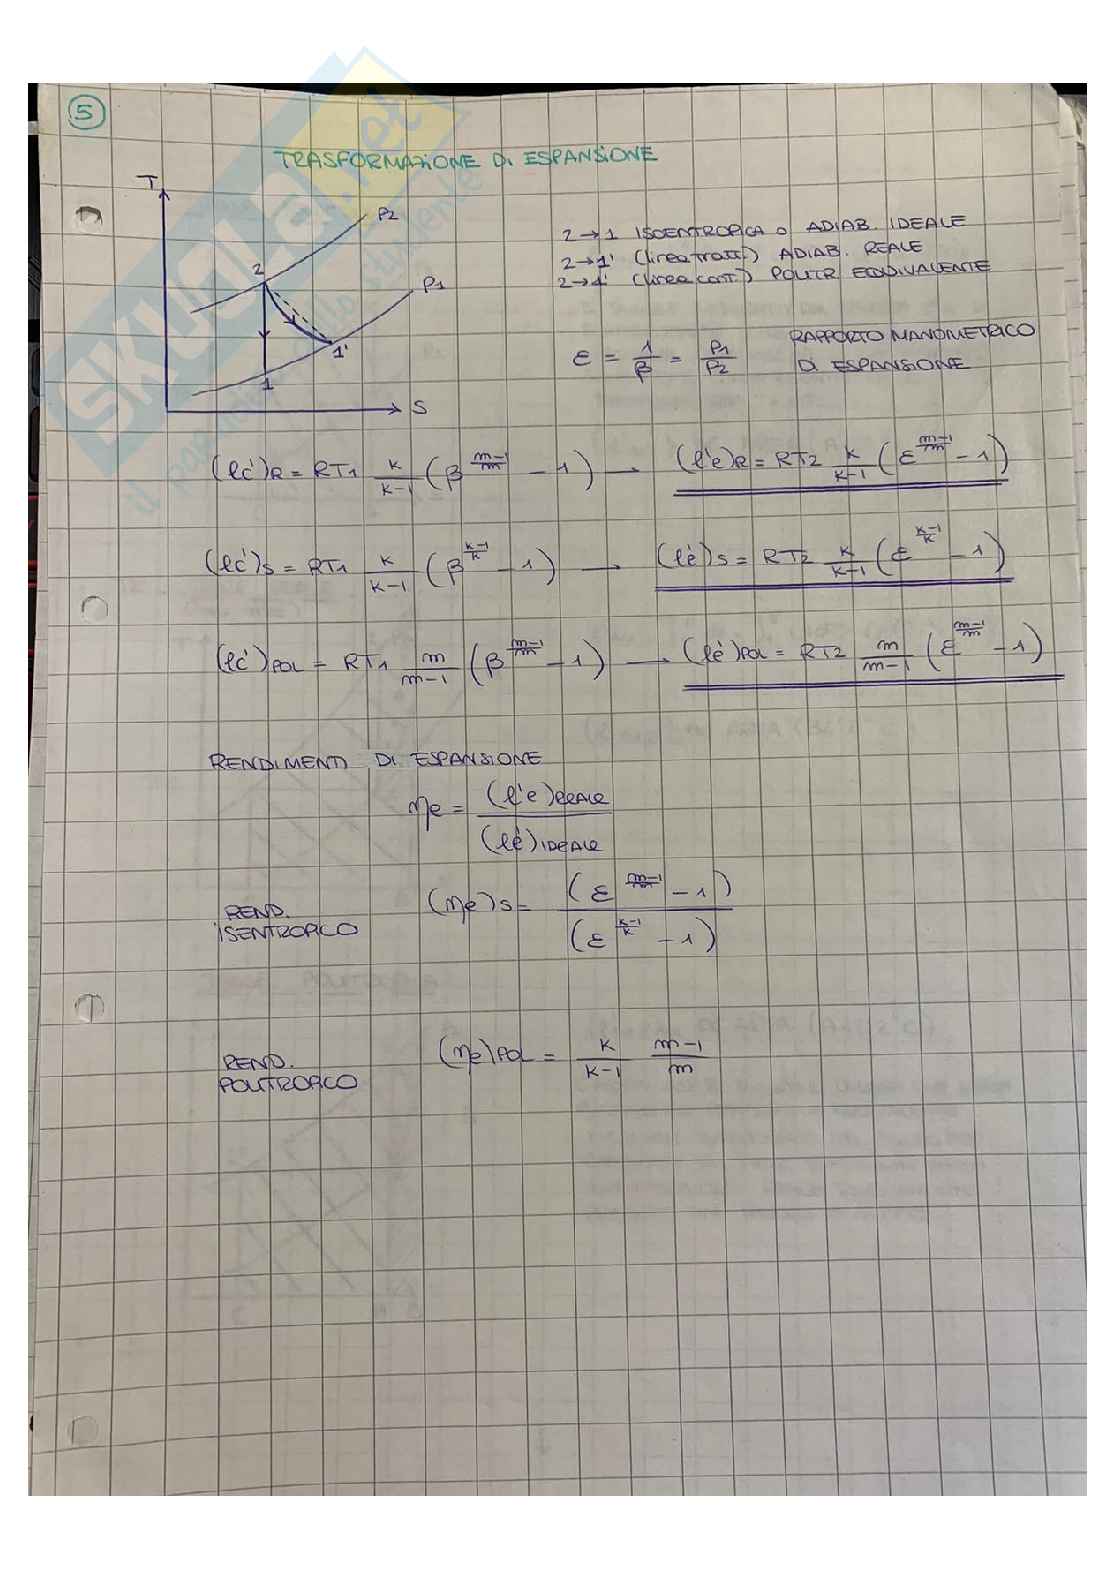 5
TRASFORMAZIONE DI ESPANSIONE
T
P2
2
P1
1'
1
S
2→1 ISOENTROPICA O ADIAB. IDEALE
2→1' (linea tratt.) ADIAB. REALE
2→1' (linea cont.) POLITR EQUIVALENTE
ε = 1/β = P1/P2 RAPPORTO MANOMETRICO
DI ESPANSIONE
(lc')R = RT1 k/(k-1) (β^((m-1)/m) - 1) → (l'e)R = RT2 k/(k-1) (ε^((m-1)/m) - 1)
(lc')S = RT1 k/(k-1) (β^((k-1)/k) - 1) → (l'e)S = RT2 k/(k-1) (ε^((k-1)/k) - 1)
(lc')POL = RT1 m/(m-1) (β^((m-1)/m) - 1) → (l'e)POL = RT2 m/(m-1) (ε^((m-1)/m) - 1)
RENDIMENTI DI ESPANSIONE
ηe = (l'e)REALE / (l'e)IDEALE
REND.
ISENTROPICO
(ηe)S = (ε^((m-1)/m) - 1) / (ε^((k-1)/k) - 1)
REND.
POLITROPICO
(ηe)POL = k/(k-1) (m-1)/m
SKUOLA.net